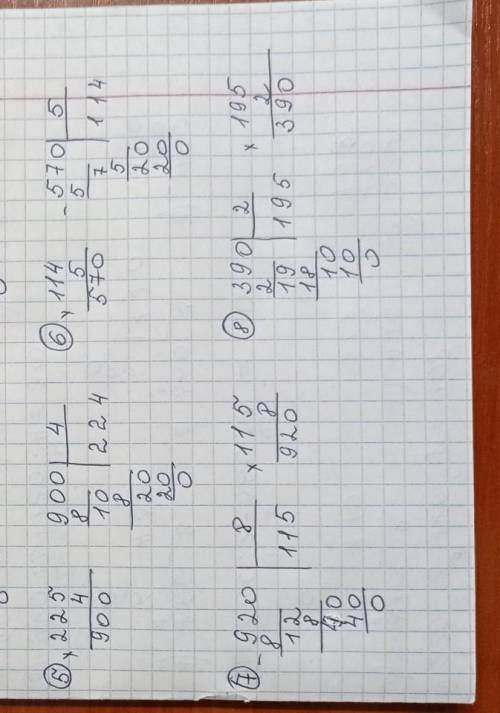 ⑤ × 225
4
900
900 4
8 224
10
8
20
20
0
⑥ × 114
5
570
- 570 5
5 114
7
5
20
20
0
⑦ - 920 8
8 115
12
8
40
40
0
× 115
8
920
⑧ 390 2
2 195
19
18
10
10
0
× 195
2
390